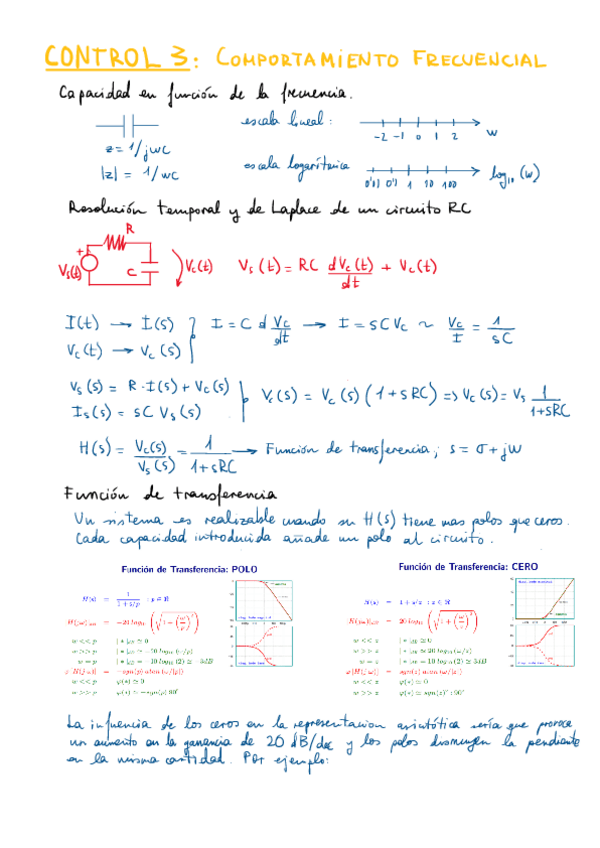 CONTROL 3: COMPORTAMIENTO FRECUENCIAL
Capacidad en función de la frecuencia.
z = 1/jwC
|z| = 1/wC
escala lineal:
-2 -1 0 1 2 w
escala logarítmica
0'01 0'1 1 10 100 log10 (w)
Resolución temporal y de Laplace de un circuito RC
R
+
Vs(t)
C
Vc(t)
Vs(t) = RC dVc(t)/dt + Vc(t)
I(t) → I(s)
Vc(t) → Vc(s)
I = C d Vc/dt → I = sCVc ~ Vc/I = 1/sC
Vs(s) = R·I(s) + Vc(s)
Is(s) = sC Vs(s)
Vs(s) = Vc(s) (1+sRC) => Vc(s) = Vs 1/1+sRC
H(s) = Vc(s)/Vs(s) = 1/1+sRC → Función de transferencia; s = σ + jw
Función de transferencia
Un sistema es realizable cuando su H(s) tiene mas polos que ceros.
Cada capacidad introducida añade un polo al circuito.
Función de Transferencia: POLO
H(s) = 1/1+s/p ; p ∈ ℝ
w << p
w >> p
w = p
w << p φ(•) ≃ 0
w >> p
Función de Transferencia: CERO
H(s) = 1 + s/z ; z ∈ ℝ
w << z
w >> z
w = z
w << z φ(•) ≃ 0
w >> z
La influencia de los ceros en la representacion asintótica sería que provoca
un aumento en la ganancia de 20 dB/dec y los polos disminuyen la pendiente
en la misma cantidad. Por ejemplo: